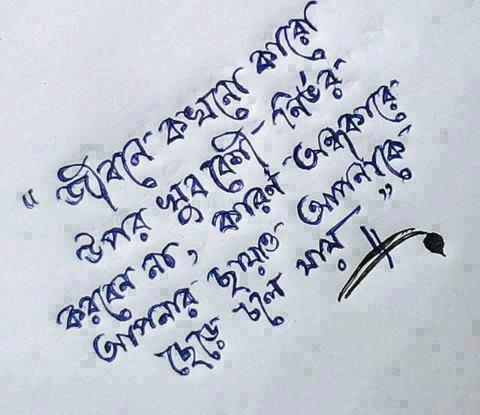 “জীবনে কখনো কারো
উপর খুব বেশী নির্ভর
করবেন না, কারণ অন্ধকারে
আপনার ছায়াও আপনাকে
ছেড়ে চলে যায়”